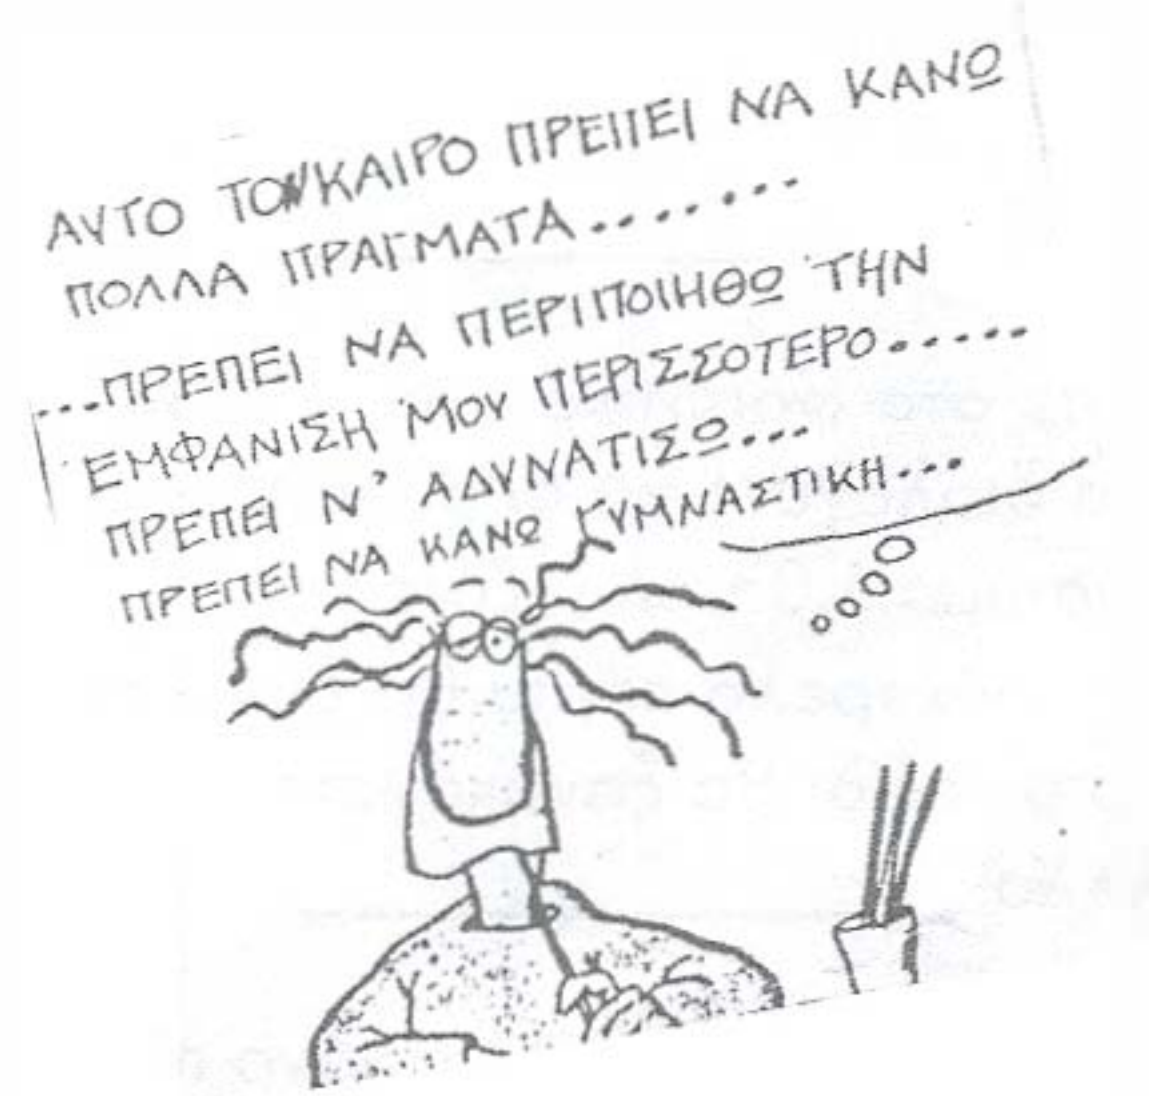 ΑΥΤΟ ΤΟΝ ΚΑΙΡΟ ΠΡΕΠΕΙ ΝΑ ΚΑΝΩ
ΠΟΛΛΑ ΠΡΑΓΜΑΤΑ.......
...ΠΡΕΠΕΙ ΝΑ ΠΕΡΙΠΟΙΗΘΩ ΤΗΝ
ΕΜΦΑΝΙΣΗ ΜΟΥ ΠΕΡΙΣΣΟΤΕΡΟ.....
ΠΡΕΠΕΙ Ν' ΑΔΥΝΑΤΙΣΩ...
ΠΡΕΠΕΙ ΝΑ ΚΑΝΩ ΓΥΜΝΑΣΤΙΚΗ...